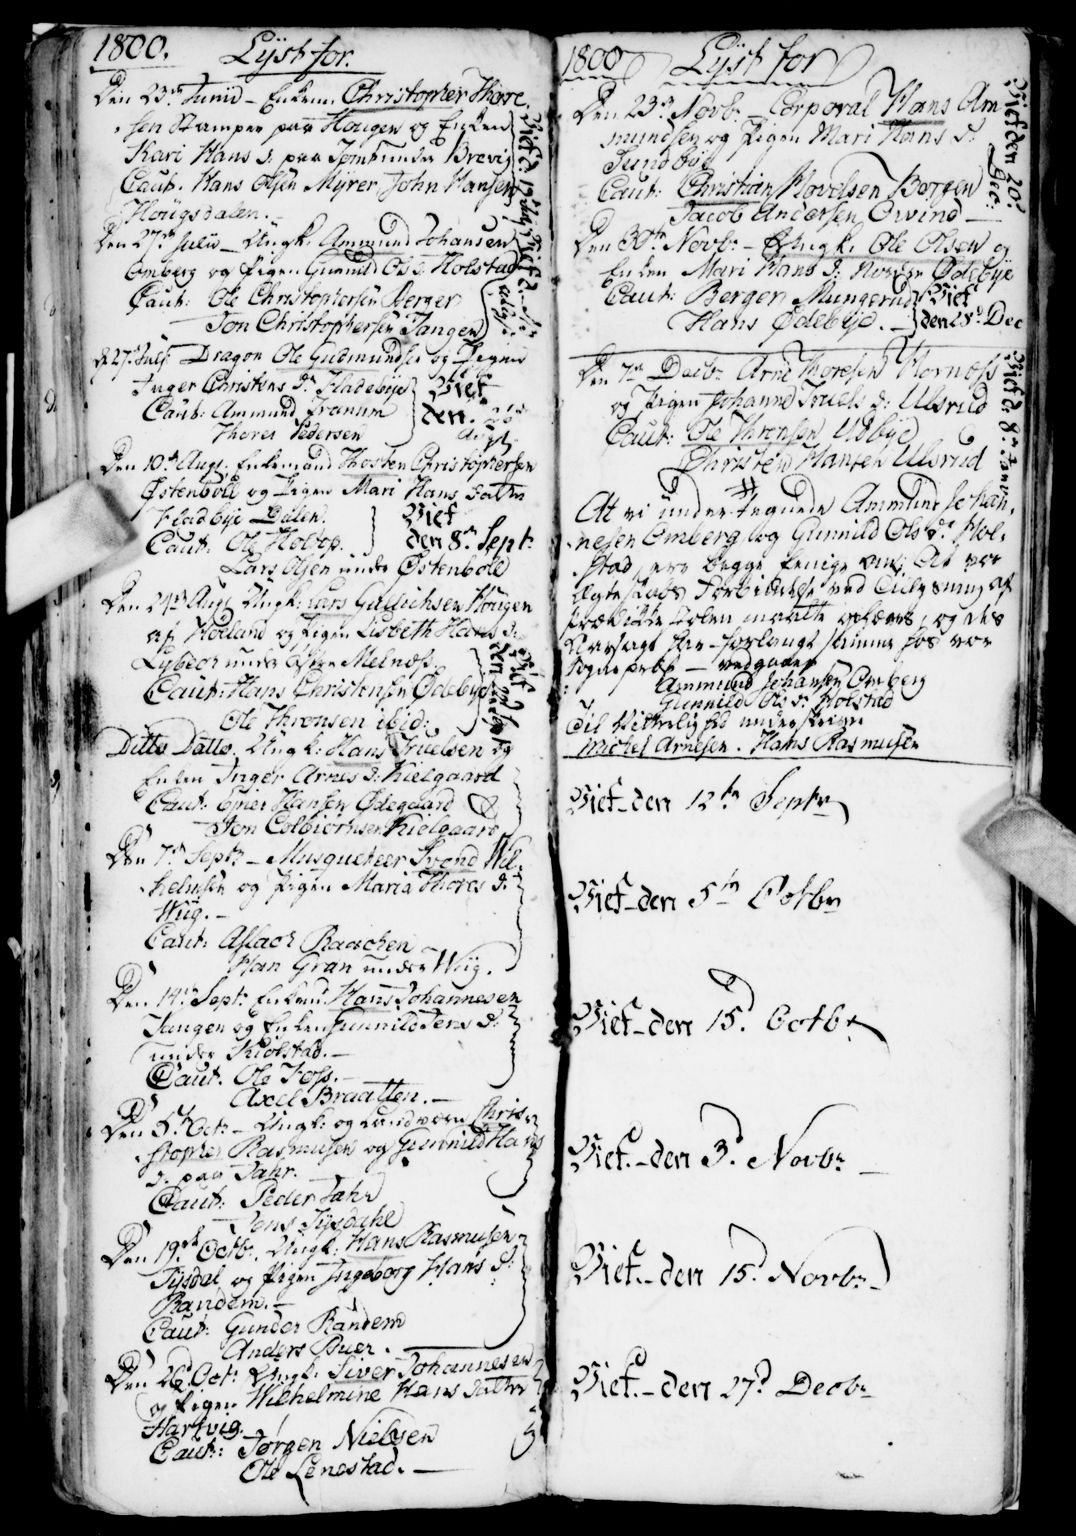 1800. Lyst for.
Den 23de Junii – Enkem. Christopher Thore-
sen Stamper paa Hougen og Enken
Kari Hans d. paa Tomt under Brevig
Caut. Hans Olsen Myrer John Hansen
Hougsdalen. –
Den 27de Julii – Ungk. Ammund Johansen
Omberg og Pigen Gunild Ols d. Holstad
Caut: Ole Christophersen Berger
Jon Christophersen Tangen
d. 27de Julii Dragon Ole Gudmundsen og Pigen
Inger Christens Dr. Fladebye
Caut: Ammund Tranum
Thorer Pedersen
Vief
den.
Den 10de Aug. Enkemand Thosten Christophersen
Østenbøll og Pigen Mari Hans Datter
Fladbye Dalen.
Caut: Ole Holtop.
Vief
den 8de Sept.
Lars Olsen under Østenbøll
Den 24de Aug. Ungk. Lars Gullichsen Hougen
af Høeland og Pigen Lisbeth Hans d.
Lybech under Melnæss
Caut: Hans Christensen Ødebye
Ole Thronsen ibid:
Ditto Datto. Ungk: Hans Truelsen og
Enken Inger Arnes d: Kielgaard
Caut: Hansen Ødegaard
Jon Colbiørnsen Kielgaard
Den 7de Septr – Musqueteer Svend Wil-
helmsen og Pigen Maria Thores d:
Wiig. –
Caut: Aslach Raachen
Han Gran under Wiig.
Den 14de Septr Enkem. Hans Johannesen
Tangen og Enken Gunnild Jens d:
under Kiølstad. –
Caut. Ole Foss. –
Axel Braatten. –
Den 5te Octr – Ungk: og Landværn Chris-
stopher Rasmusen og Gunnild Hans
d. paa Jahr.
Caut: Peder Jahr
Jens Tysdahl
Den 19de Octbr. Ungk: Hans Rasmusen
Tysdal og Pigen Ingeborg Hans d:
Randem. –
Caut: Gunder Randem
Anders Buer.
Den 26d Octr: Ungk: Siver Johannesen
og Pigen Wilhelmine Hans Datter
Hartvig –
Caut: Jørgen Nielsen
Ole Lenestad. –
1800 Lyst for
Den 23de Novbr Corporal Hans Am-
mundsen og Pigen Mari Hans d.
Sundbye
Caut: Christian Hovelsen Borgen
Jacob Andersen Ovind –
Vief den 20d Dec:
Den 30te Novbr – Ungk. Ole Olsen og
Enken Mari Hans d: Nordre Ødebye
Caut: Berger Mungerud
Hans Ødebye. –
Vief
den 28d Dec
Den 7de Decbr Arne Thoresen Hornæss
og Pigen Johanne Truels d: Ulsrud
Caut: Ole Thronsen Udbye
Christen Hansen Ulsrud
Vief d. 8de Janv
#
At vi undertegnede Ammund Johan-
nesen Omberg og Gunnild Ols Dr Hol-
stad, ere begge eenige om, at vor
Ægteskabs Forbindelse ved Tillysning af
Prædikestolen maatte ophæves, og des
Aarsage har forlangt samme hos vor
Sognepræst – vedgaaer
Ammund Johansen Omberg
Gunnild Ols d: Holstad
Til Vitterlighed underskriver
Michel Arnesen. Hans Rasmusen
Vief – den 12te Septr
Vief – den 5te Octbr
Vief – den 15d Octbr
Vief. – den 3d Novbr –
Vief. – den 15d Novbr
Vief. – den 27d Decbr